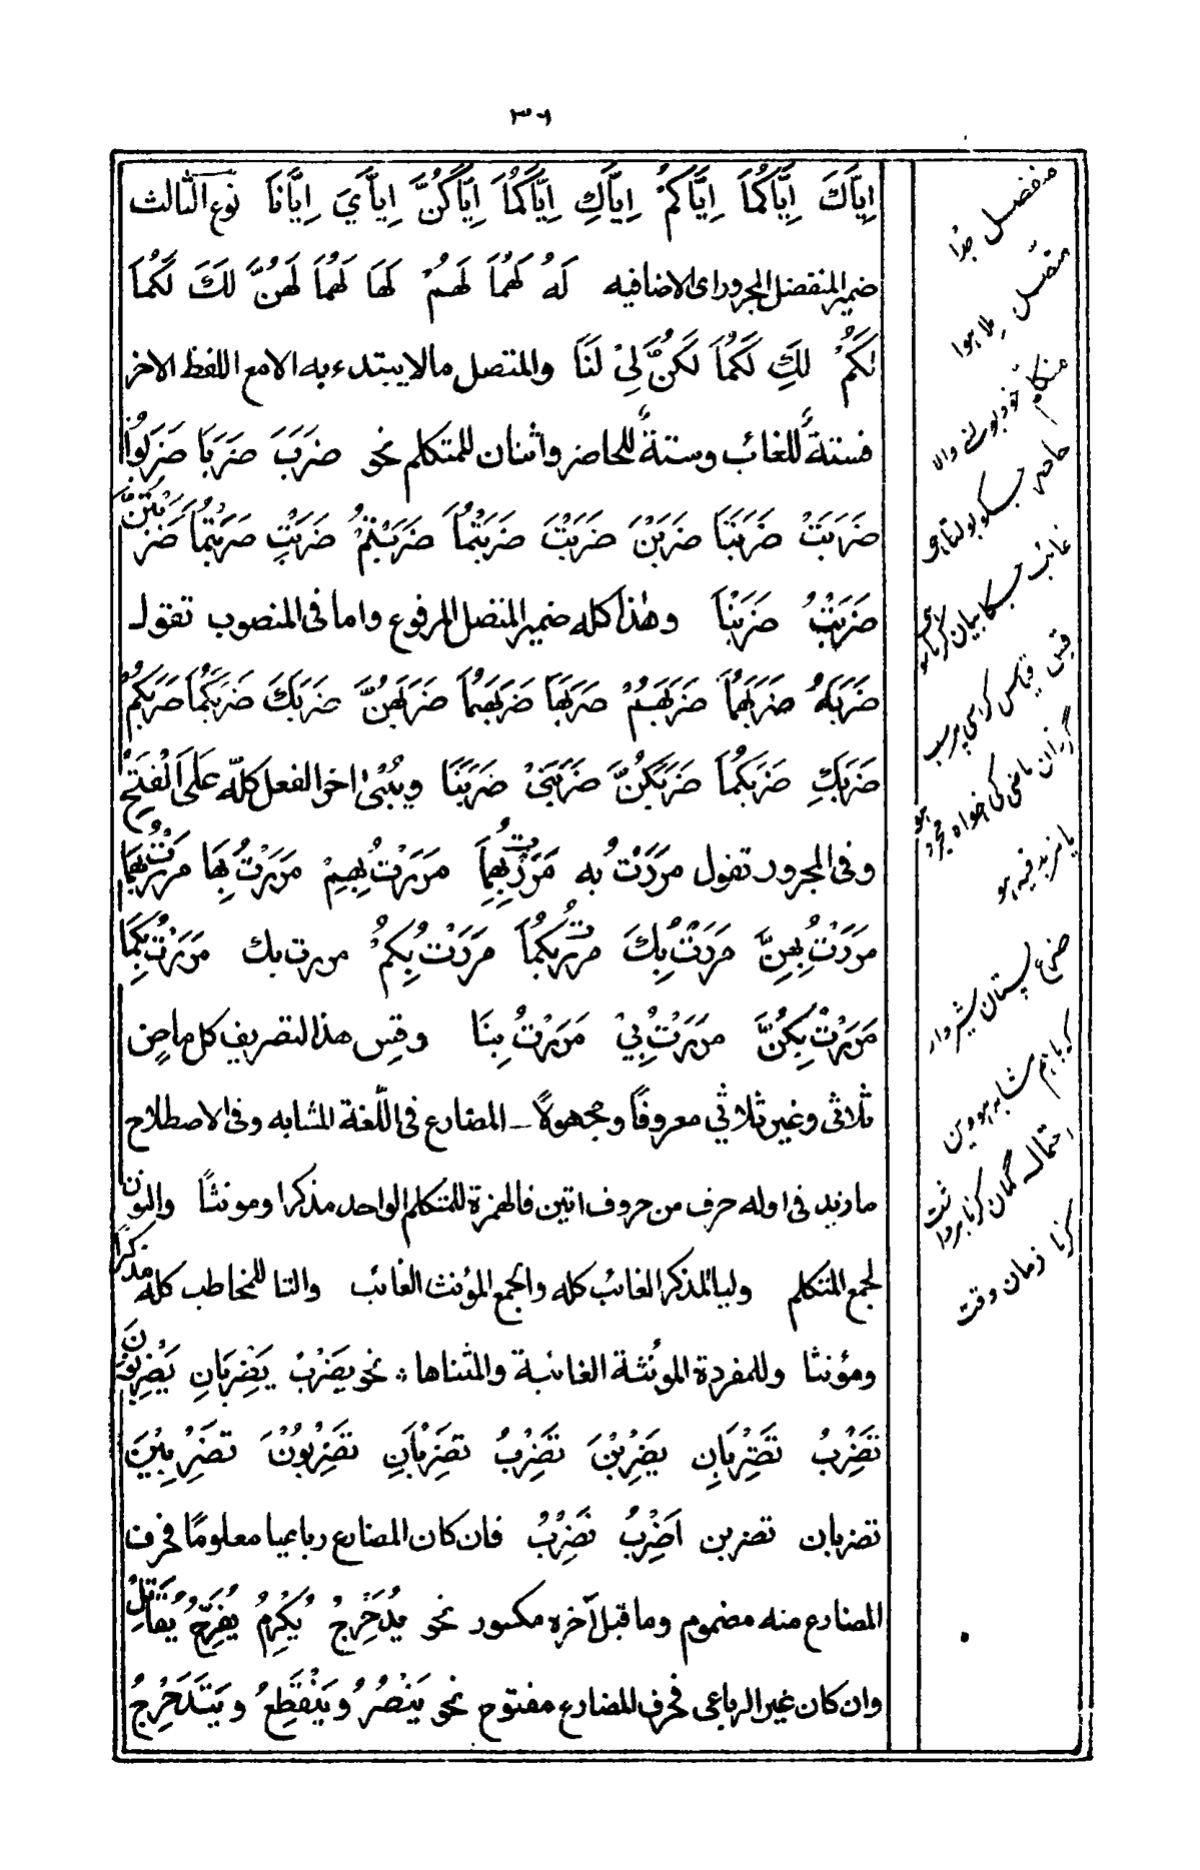 ٣٦
اِيَّاكَ اِيَّاكُمَا اِيَّاكُمْ اِيَّاكِ اِيَّاكُمَا اِيَّاكُنَّ اِيَّايَ اِيَّانَا نوع الثالث
ضمير المنفصل المجرور اى الاضافيه لَهُ لَهُمَا لَهُمْ لَهَا لَهُمَا لَهُنَّ لَكَ لَكُمَا
لَكُمْ لَكِ لَكُمَا لَكُنَّ لِيْ لَنَا والمتصل مالا يبتدء به الا مع اللفظ الاخر
فستةٌ للغائب وستةٌ للحاضر واثنان للمتكلم نحو ضَرَبَ ضَرَبَا ضَرَبُوْا
ضَرَبَتْ ضَرَبَتَا ضَرَبْنَ ضَرَبْتَ ضَرَبْتُمَا ضَرَبْتُمْ ضَرَبْتِ ضَرَبْتُمَا ضَرَبْتُنَّ
ضَرَبْتُ ضَرَبْنَا وهذا كله ضمير المتصل المرفوع واما فى المنصوب تقول
ضَرَبَهُ ضَرَبَهُمَا ضَرَبَهُمْ ضَرَبَهَا ضَرَبَهُمَا ضَرَبَهُنَّ ضَرَبَكَ ضَرَبَكُمَا ضَرَبَكُمْ
ضَرَبَكِ ضَرَبَكُمَا ضَرَبَكُنَّ ضَرَبَنِيْ ضَرَبَنَا ويُبْنٰى اخر الفعل كلّه عَلَى الْفَتْحِ
وفى المجرور تقول مَرَرْتُ بِه مَرَرْتُ بِهِمَا مَرَرْتُ بِهِمْ مَرَرْتُ بِهَا مَرَرْتُ بِهِمَا
مَرَرْتُ بِهِنَّ مَرَرْتُ بِكَ مَرَرْتُ بِكُمَا مَرَرْتُ بِكُمْ مررت بك مَرَرْتُ بِكُمَا
مَرَرْتُ بِكُنَّ مَرَرْتُ بِيْ مَرَرْتُ بِنَا وقِس هذا لتصريف كل ماضٍ
ثلاثى وغير ثلاثي معروفًا ومجهولًا ـ المضارع فى اللّغة المشابه وفى الاصطلاح
ما زيد فى اوله حرف من حروف اتين فالهمزة للمتكلم الواحد مذكرا ومونثًا والنون
لجمع المتكلم وليا للمذكر الغائب كله والجمع المؤنث الغائب والتا للمخاطب كله مذكرًا
ومؤنثا وللمفردة المؤنثة الغائبة والمثناها ؞ نحو يَضْرِبُ يَضْرِبَانِ يَضْرِبُوْنَ
تَضْرِبُ تَضْرِبَانِ يَضْرِبْنَ تَضْرِبُ تَضْرِبَانِ تَضْرِبُوْنَ تَضْرِبِيْنَ
تضربان تضربن اَضْرِبُ نَضْرِبُ فان كان المضارع رباعيا معلومًا فحرف
المضارع منه مضموم وما قبل آخره مكسور نحو يُدَحْرِجُ يُكْرِمُ يُفَرِّحُ يُقَاتِلُ
وان كان غير الرباعى فحرف المضارع مفتوح نحو يَنْصُرُ ويَنْقَطِعُ ويَتَدَحْرَجُ
منفصل جدا
متصل ملا ہوا
متكلم خود بولنے والا
حاضر جسکو بولتا ہے
غائب جسکا بیان کرتا ہو
گردان ماضى كى خواہ مجرد ہو
یا مزید فیہ ہو
ضرع پستان شیردار
زمان وقت